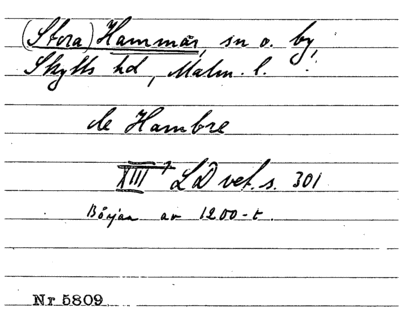 (Stora) Hammar, sn o. by,
Skytts hd, Malm. l.
de Hambre
XIII 1 LD vet. s. 301
Början av 1200-t.
Nr 5809